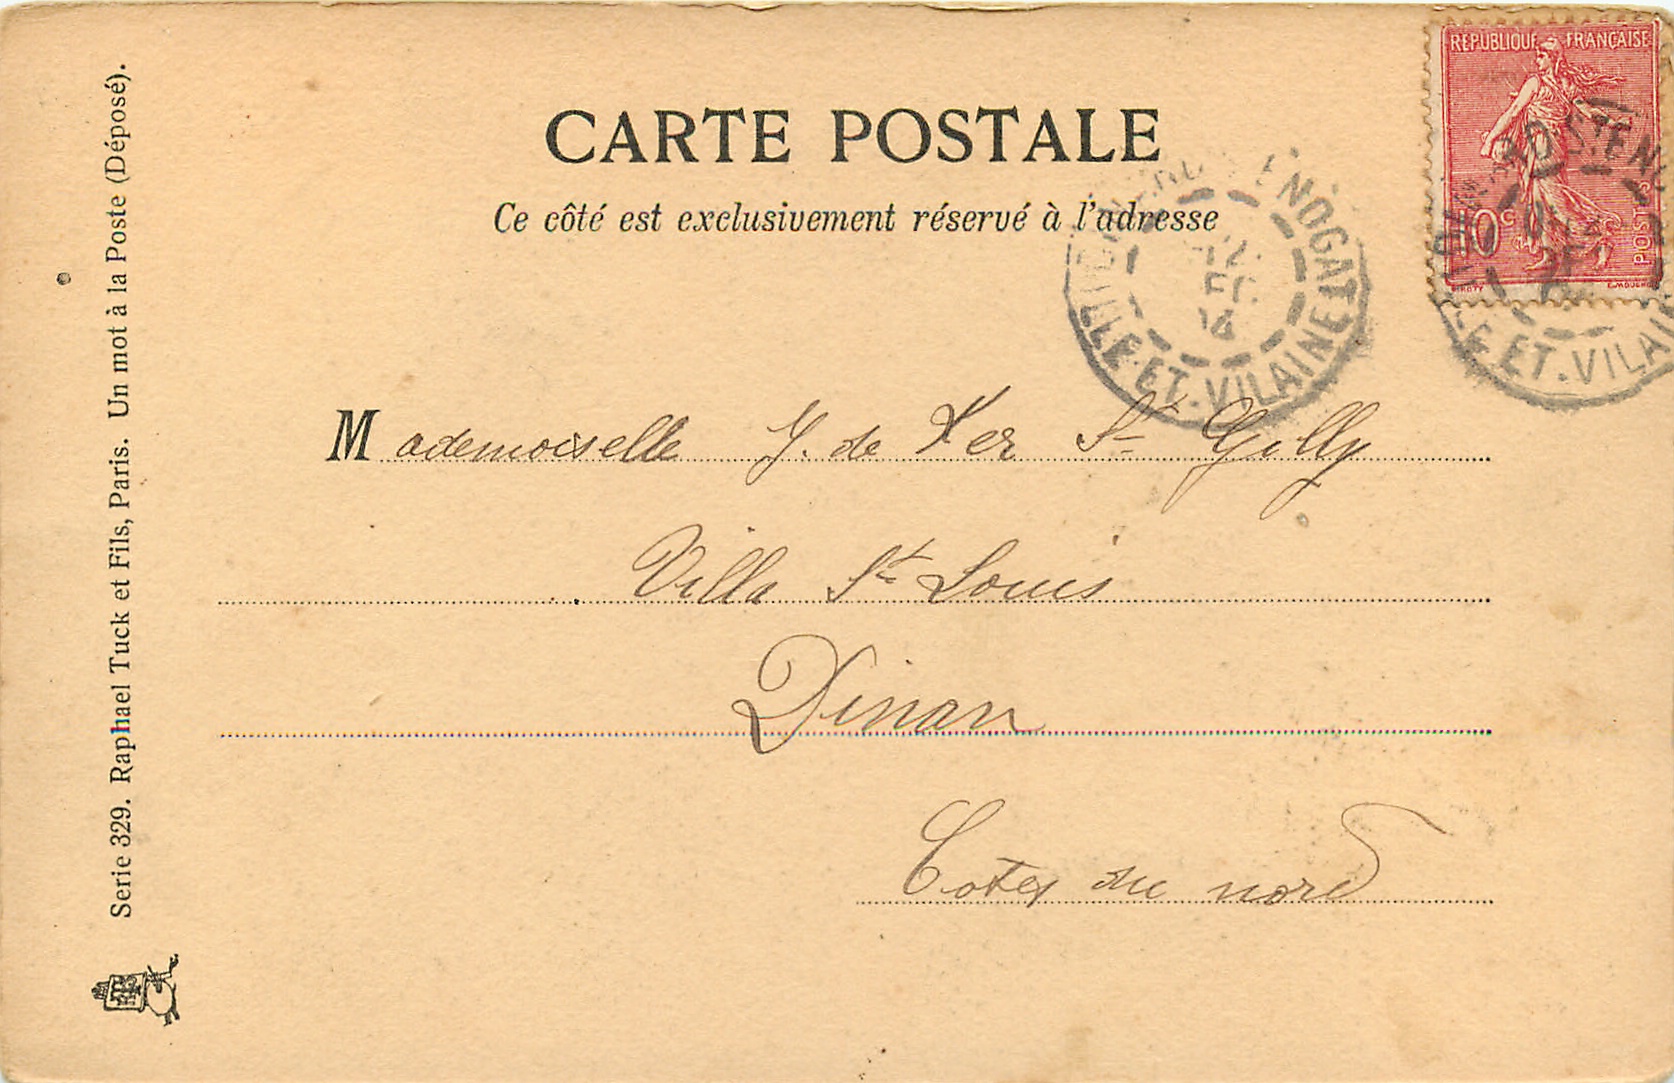 CARTE POSTALE
Ce côté est exclusivement réservé à l'adresse
REPUBLIQUE FRANÇAISE
10c
POSTES
ILLE-ET-VILAINE
ET.VILAI
Mademoiselle Y. de Ker St Gilly
Villa St Louis
Dinan
Cotes du nord
Serie 329. Raphael Tuck et Fils, Paris. Un mot à la Poste (Déposé).